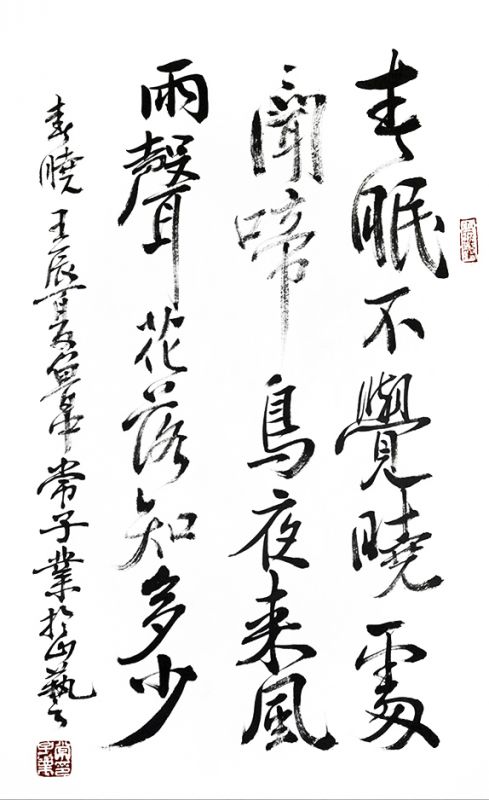 春眠不覺曉處
聞啼鳥夜来風
雨聲花落知多少
春曉 壬辰首夏魯中常子業於山藝